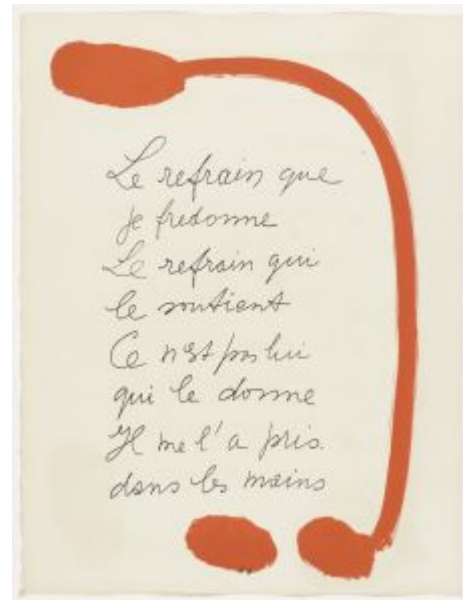 Le refrain que
je fredonne
Le refrain qui
le soutient
Ce n'est pas lui
qui le donne
Il me l'a pris
dans les mains